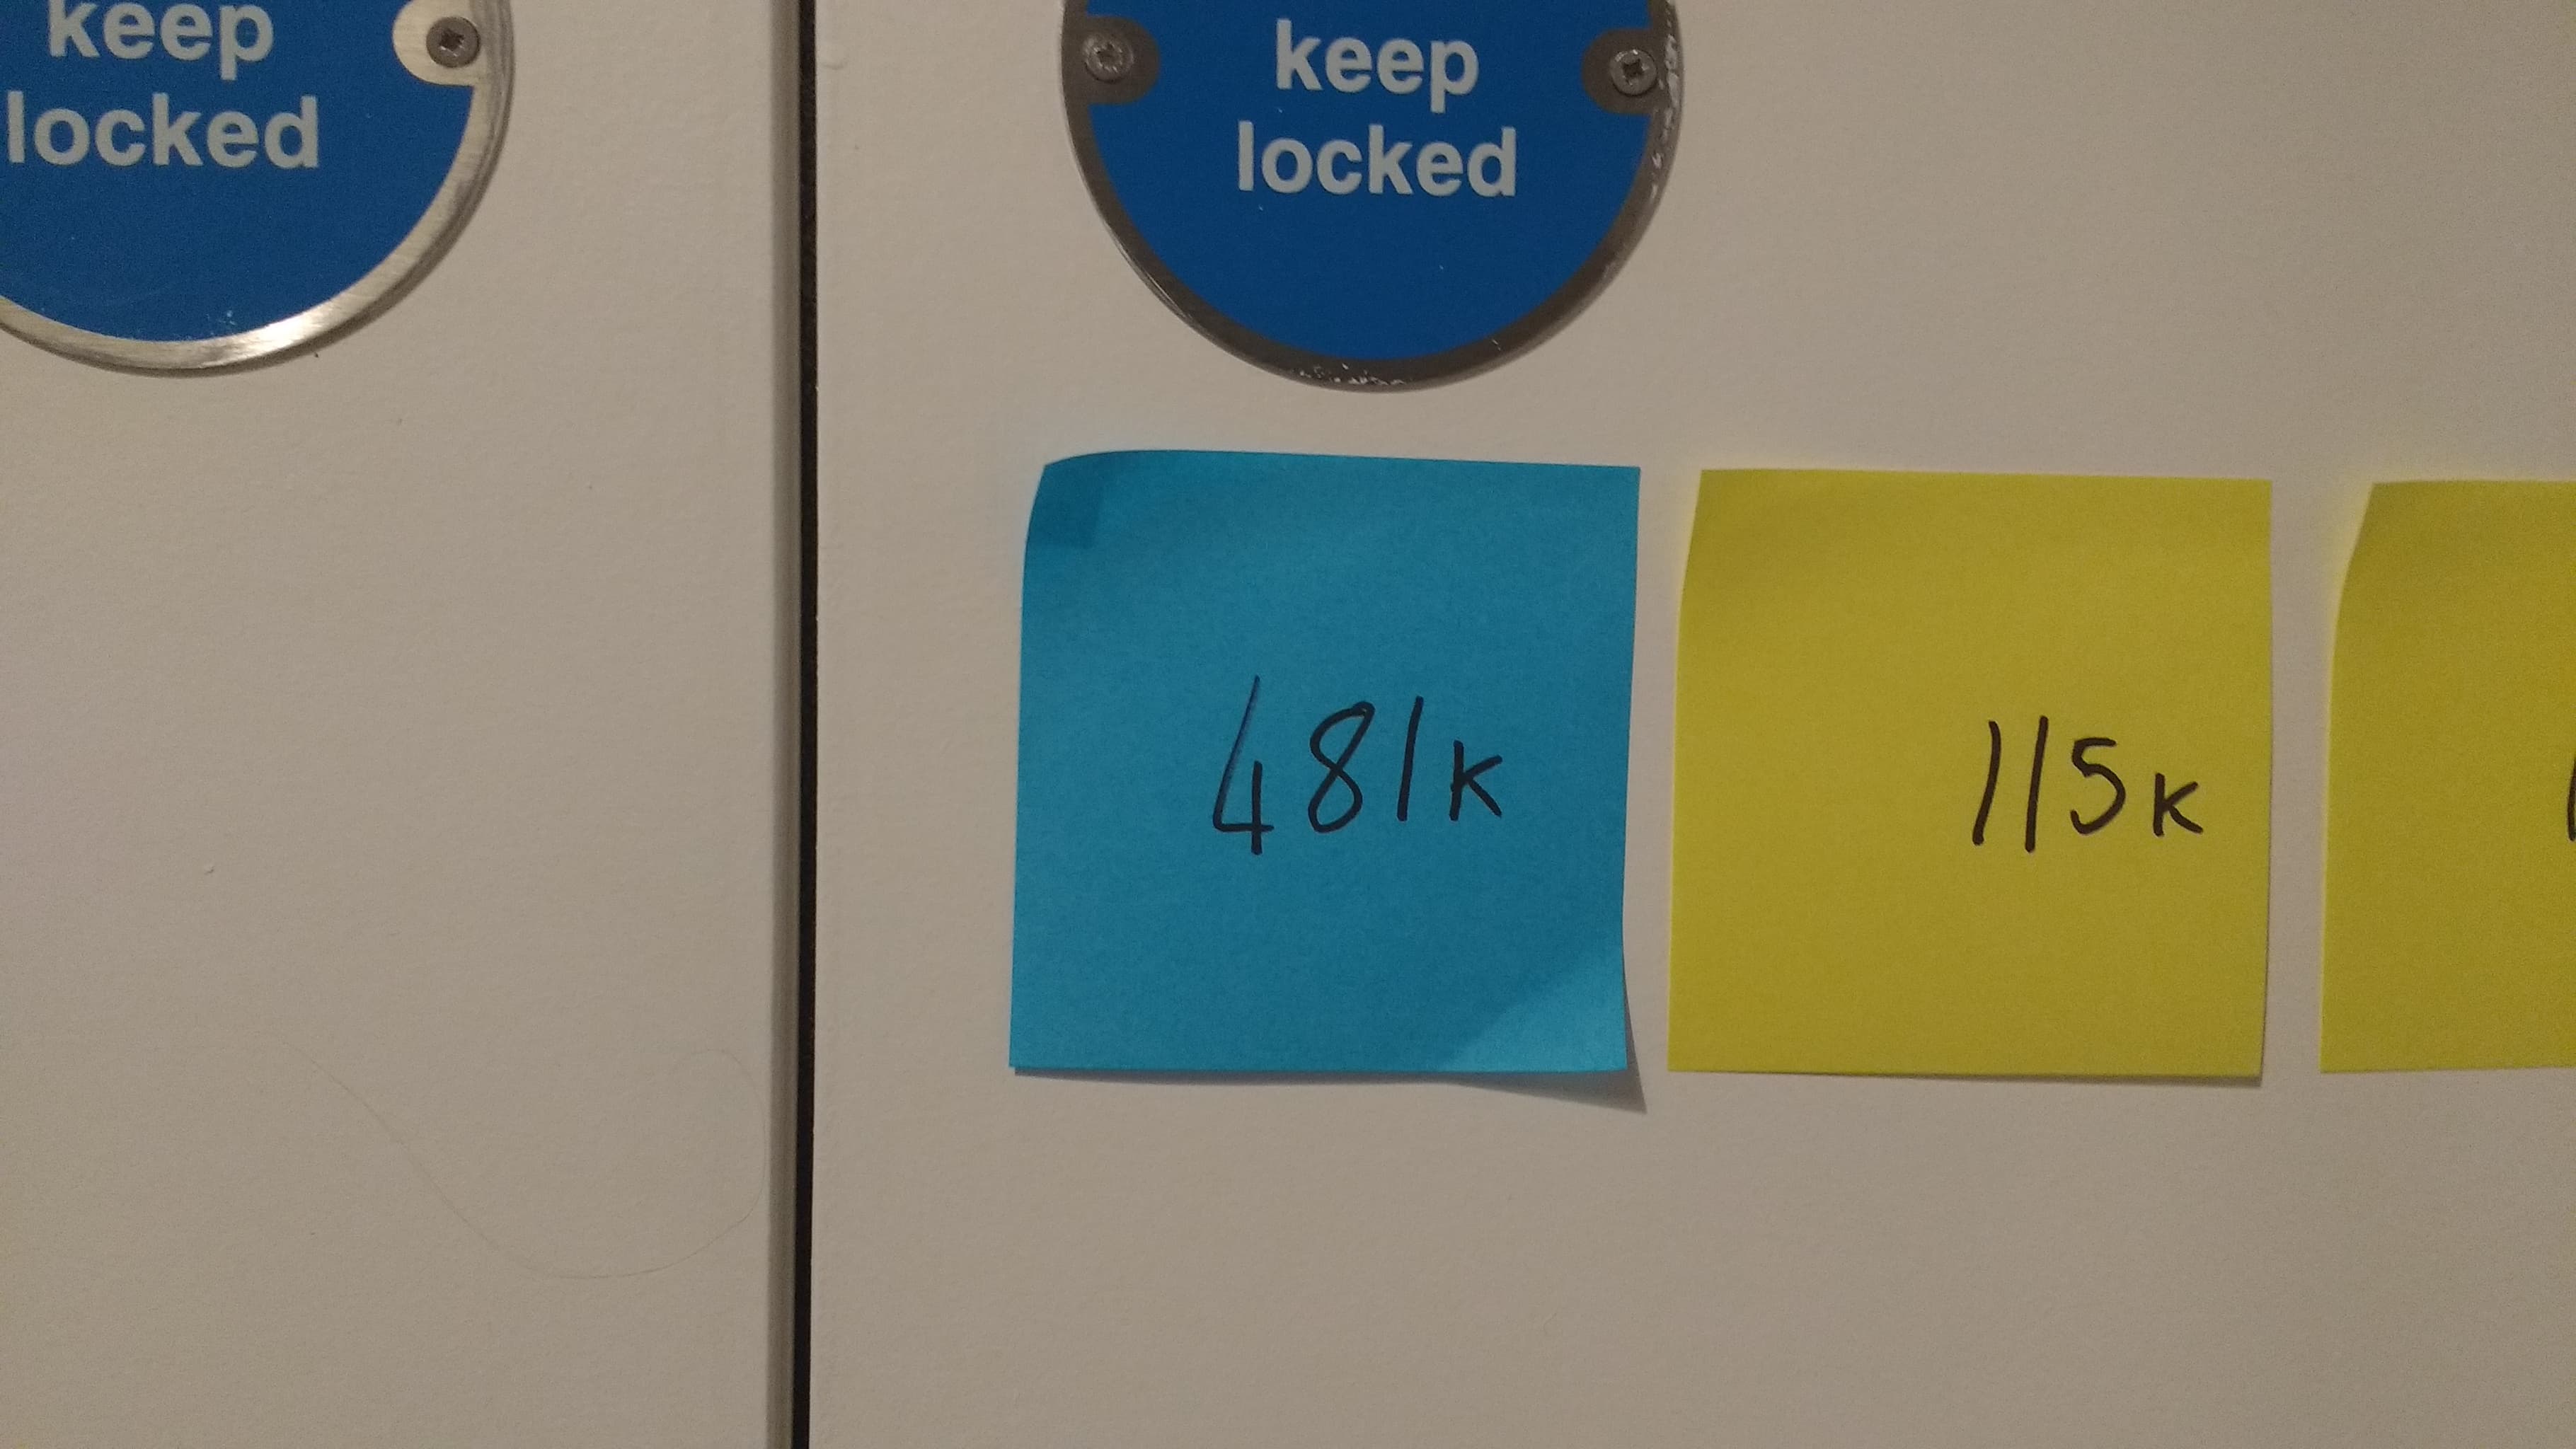 keep
locked
keep
locked
481k
115k